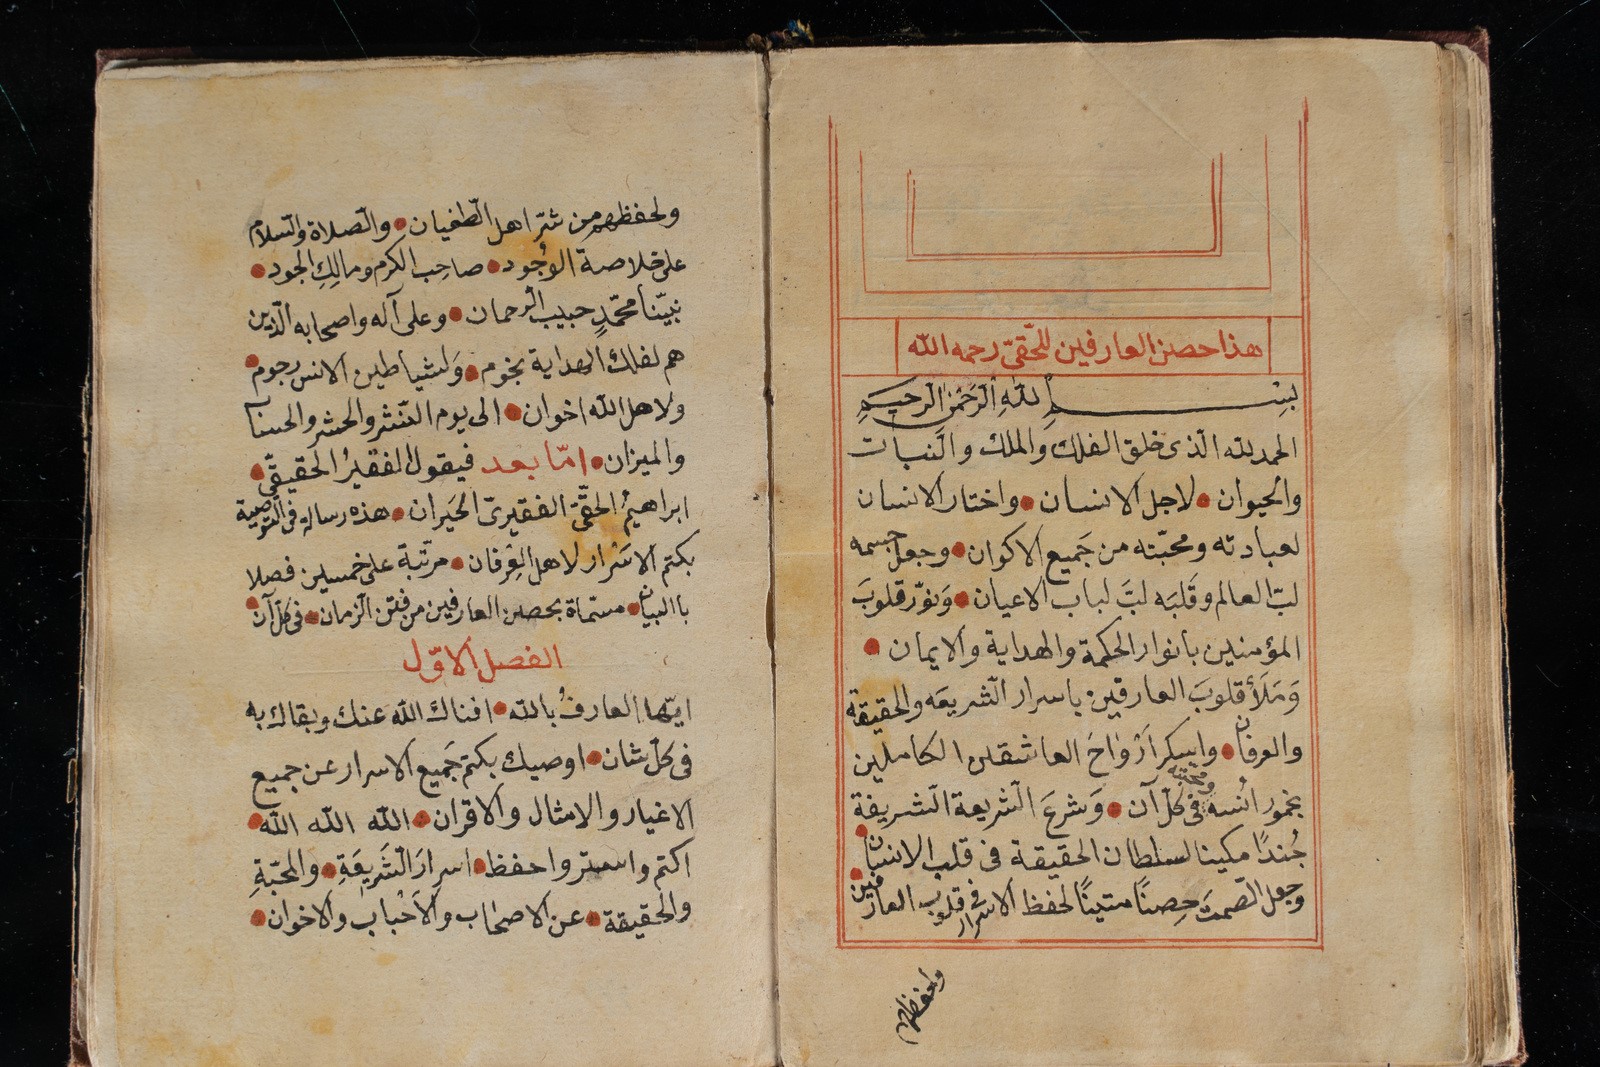 هذا حصن العارفين للحقّيّ رحمه الله
بسم الله الرَّحمٰن الرحيم
الحمد لله الّذى خلق الفلك والملك والنّبات
والحيوان • لاجل الانسان • واختار الانسان
لعبادته ومحبّته من جَميع الاكوان • وجعل جسمه
لبّ العالم وقَلبَه لبَّ لباب الاعيان • وَنوّر قلوبَ
المؤمنين بانوار الحكمة والهداية والايمان •
وَمَلَأ قلوبَ العارفين باسرار الشّريعه والحقيقة
والعرفان • وايسكر اَرْوَاحَ العاشقين الكاملين
بخمور اُنسه ومحبّته فى كلّ آن • وَشرعَ الشّريعة الشّريفة
جُندًا مكينا لسلطان الحقيقة فى قلب الانسان •
وجعل الصّمتَ حِصنًا متينًا لحفظ الاسرار فى قلوب العارفين •
ولحفظهم
ولحفظهم من شرّ اهل الطّغيان • والصّلاة والسّلام
على خلاصة الوُجُود • صاحِب الكرم ومالِكِ الجود •
نبيّنا محمّدٍ حبيب الرّحمان • وعلى آله واصحابه الّذين
هم لفلك الهداية نجوم • وَلشياطين الانس رجوم •
ولاهل الله اخوان • الى يوم النّشر والحشر والحسنا
والميزان • امّا بعد فيقول الفقيرُ الحقيقىّ •
ابراهيمُ الحقّىّ الفقيرىّ الحَيران • هذه رسالة فى التّوصية
بكتم الاسْرار لاهل العِرفان • مرتّبة على خمسين فصلا
باالبيان • مسّماة بحصن العارفين من فتن الزّمان • فى كلّ آن •
الفصل الاوّل
ايّها العارفُ بالله • افناك الله عنك وبقاك به
فى كلّ شان • اوصيك بكتم جَميع الاسرار عن جميع
الاغيار والامثال والاقران • الله الله الله •
اكتم واستر واحفظ • اسرارَ الشّريعَةِ • والمحبّةِ
والحقيقة • عن الاصْحَاب والاَحْباب والاخوان •